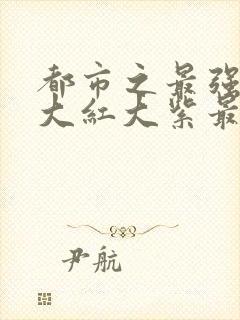 都市之最强
大红大紫最
尹航